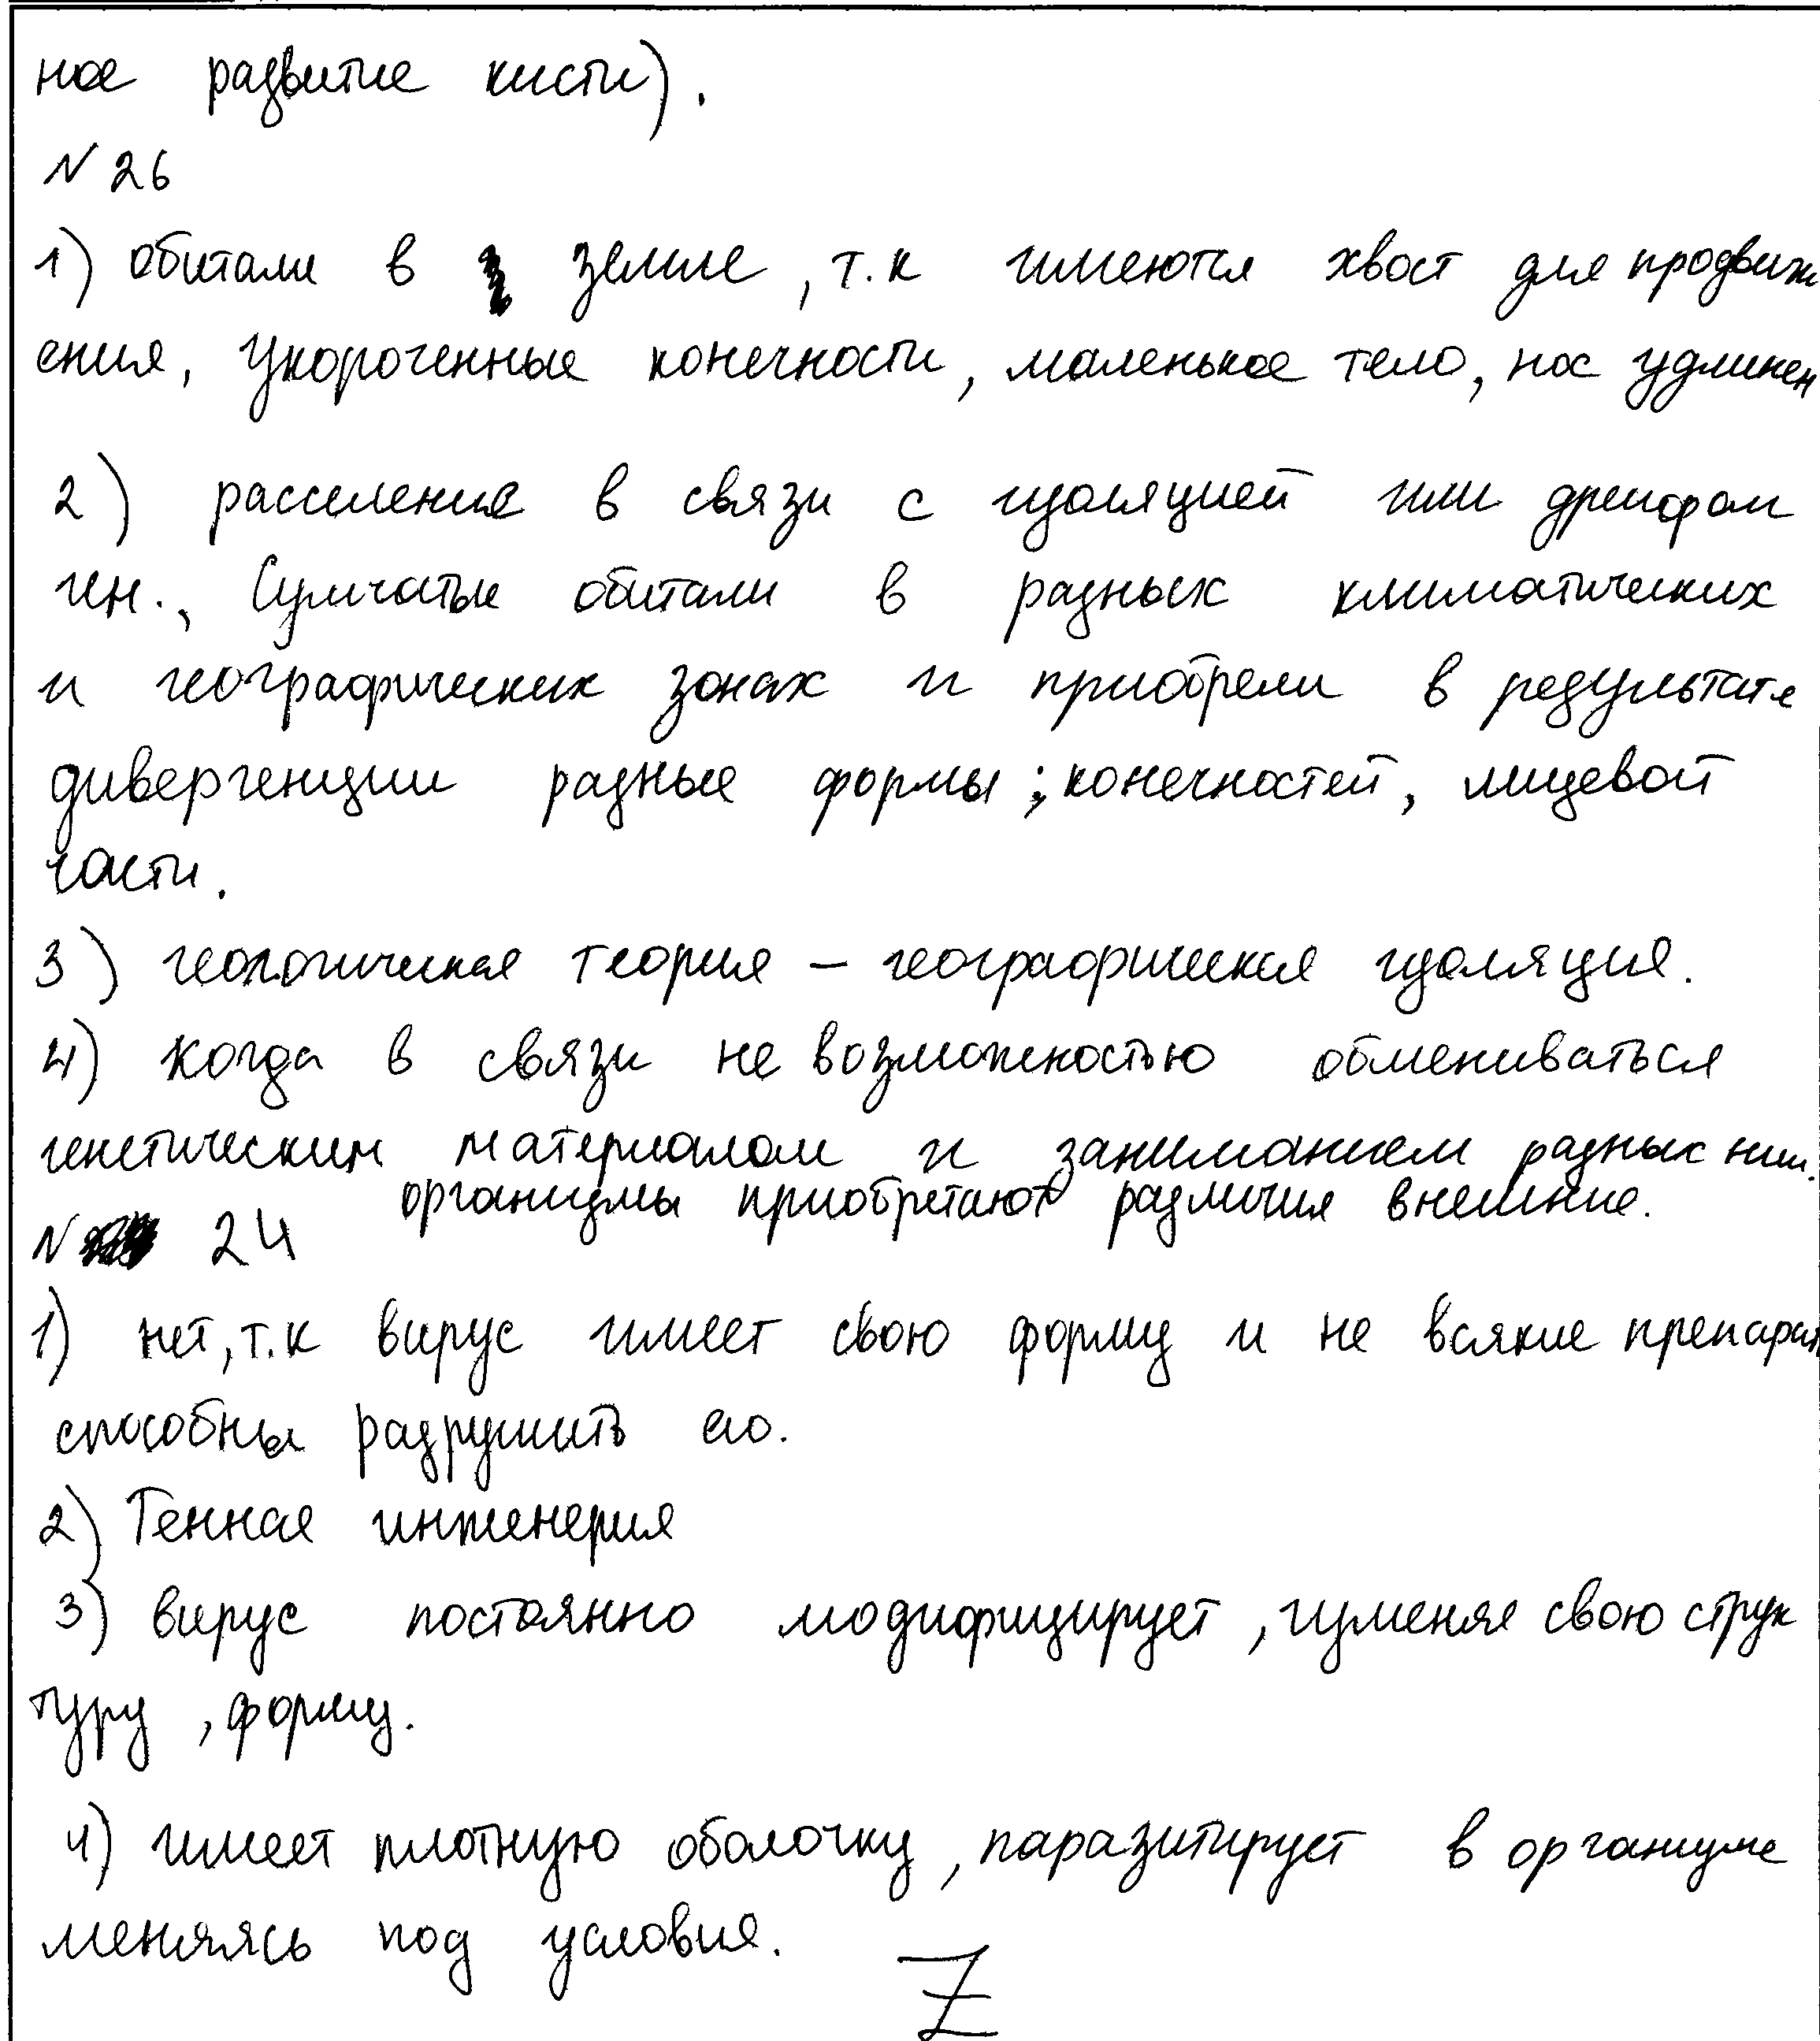 ное развитие кисти).
N 26
1) обитали в земле, т.к имеются хвост для продвиж
ения, укороченные конечности, маленькое тело, нос удлинен
2) расселение в связи с изоляцией или дрейфом
ген., Сумчатые обитали в разных климатических
и географических зонах и приобрели в результате
дивергенции разные формы ; конечностей, лицевой
части.
3) геологическая теория – географическая изоляция.
4) Когда в связи не возможностью обмениваться
генетическим материалом и заниманием разных ниш.
организмы приобретают различия внешние.
N 24
1) нет, т.к вирус имеет свою форму и не всякие препарат
способны разрушить его.
2) Генная инженерия
3) вирус постоянно модифицирует, изменяя свою струк
туру, форму.
4) имеет плотную оболочку, паразитирует в организме
меняясь под условия.
Z